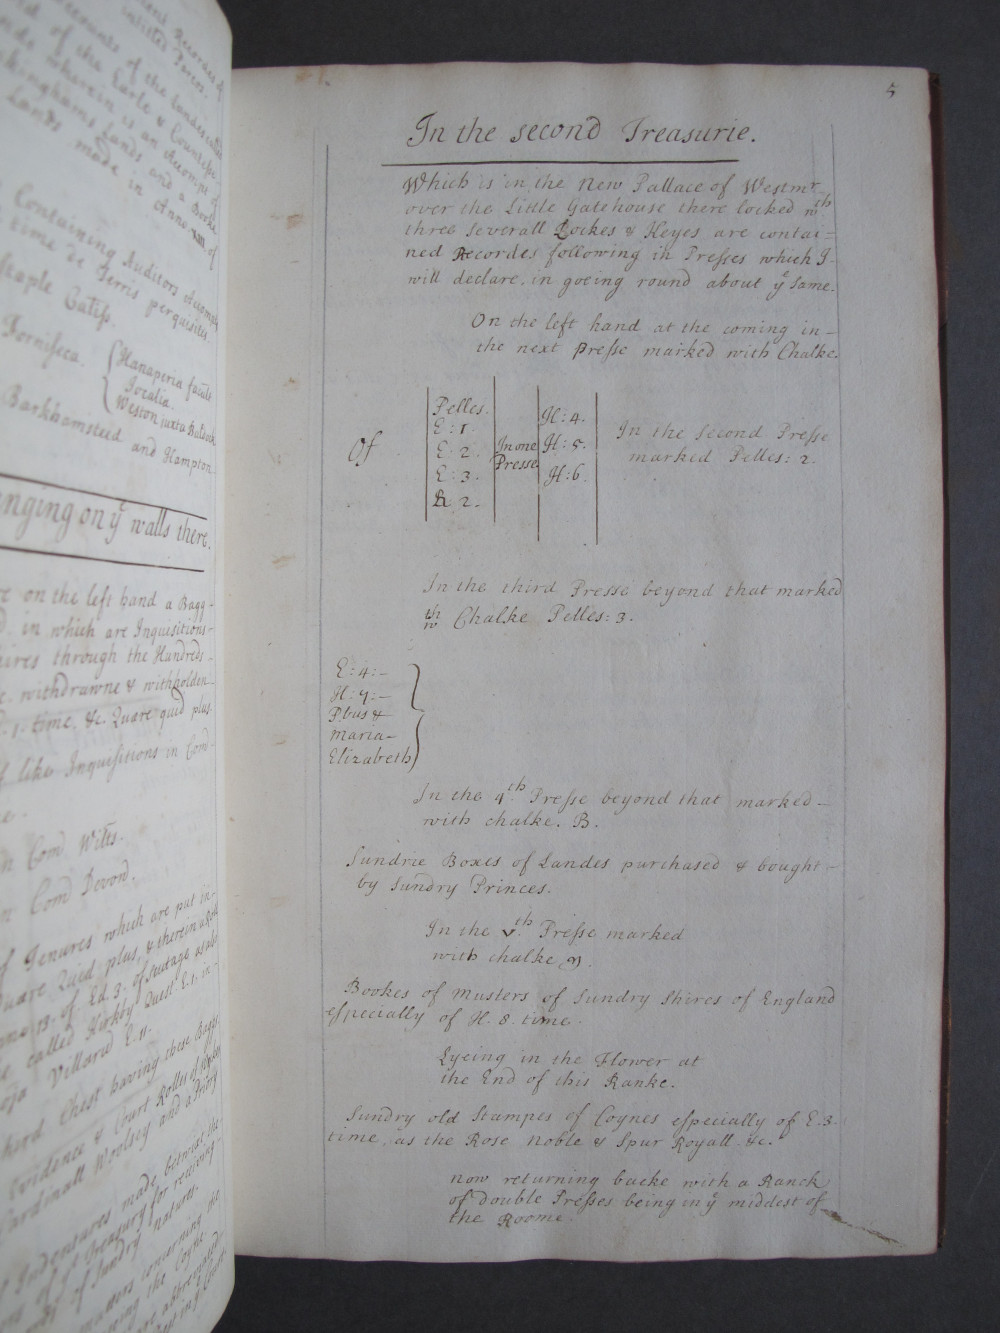 ment Recordes of
intitled Forren.
Accounts of the landes called
of the Earle & Countesse
wherein is an Accompt of
Buckinghams Lands and a Booke
Lands made in Anno xiii of
Containing Auditors Accompts
time de Terris perquisitis
Staple Caliss.
Forniseca.
Hanaperia facult
Jocalia.
Weston juxta Baldock
Barkhamsteed and Hampton
nging on yᵉ walls there.
re on the left hand a Bagg-
in which are Inquisitions-
ires through the Hundreds-
withdrawne & withholden-
1. time. &c. Quare quid plus
f like Inquisitions in Com̄-
e.
n Com̄ Wilts.
n Com̄ Devon.
f Tenures which are put in-
uare Quid plus, & therein a Roll
Anno 13. of Ed. 3. of scutage as also
called Kirkby Quest E.1. in-
Villard E. 11.
hird Chest having these Baggs
Evidence & Court Rolles of
Cardinall Woolsey and a Priory
Indentures made betwixt the
of yᵉ Treasury for receiving
of Sundry natures.
matters concerning the
the Coyne
are abbreviated
5
In the second Treasurie.
Which is in the New Pallace of Westmʳ-
over the Little Gatehouse there locked wᵗʰ
three severall Lockes & Keyes are contai=
ned Recordes following in Presses which I-
will declare, in goeing round about yᵉ Same.
On the left hand at the coming in-
the next Presse marked with Chalke.
Of
Pelles.
E: 1.
E: 2.
E: 3.
R. 2.
In one
Presse
H: 4.
H: 5.
H: 6.
In the Second Presse
marked Pelles: 2.
In the third Presse beyond that marked
wᵗʰ Chalke Pelles: 3.
E: 4:-
H: 7:-
P.bus &
Maria-
Elizabeth
In the 4.ᵗʰ Presse beyond that marked-
with chalke. B.
Sundrie Boxes of Landes purchased & bought-
by Sundry Princes.
In the v.ᵗʰ Presse marked
with chalke
Bookes of Musters of Sundry Shires of England
especially of H. 8. time.
Lyeing in the Flower at
the End of this Ranke.
Sundry old Stampes of Coynes especially of E. 3.
time, as the Rose Noble & Spur Royall. &c.
now returning backe with a Ranck
of double Presses being in yᵉ middest of
the Roome.